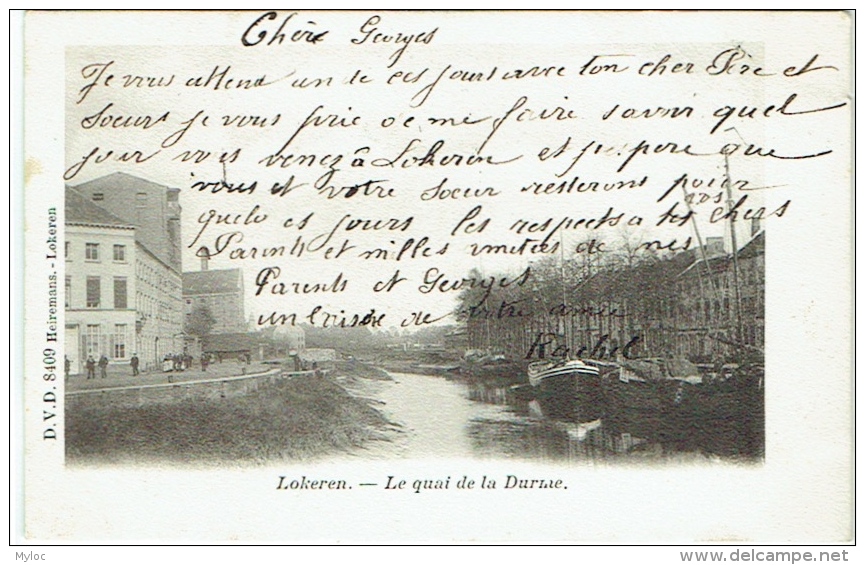 Chère Georges
Je vous attend un de ces jours avec ton cher Père et
Soeurs je vous prie de me faire savoir quel
jour vous venez à Lokeren et j'espere que
vous et votre Soeur resterons pour
quelques jours les respects a tes chers
Parents et milles amities de mes
Parents et Georges
un baiser de votre amie
Rachel
D.V.D. 8409 Heiremans. - Lokeren
Lokeren. — Le quai de la Durme.
Myloc
www.delcampe.net